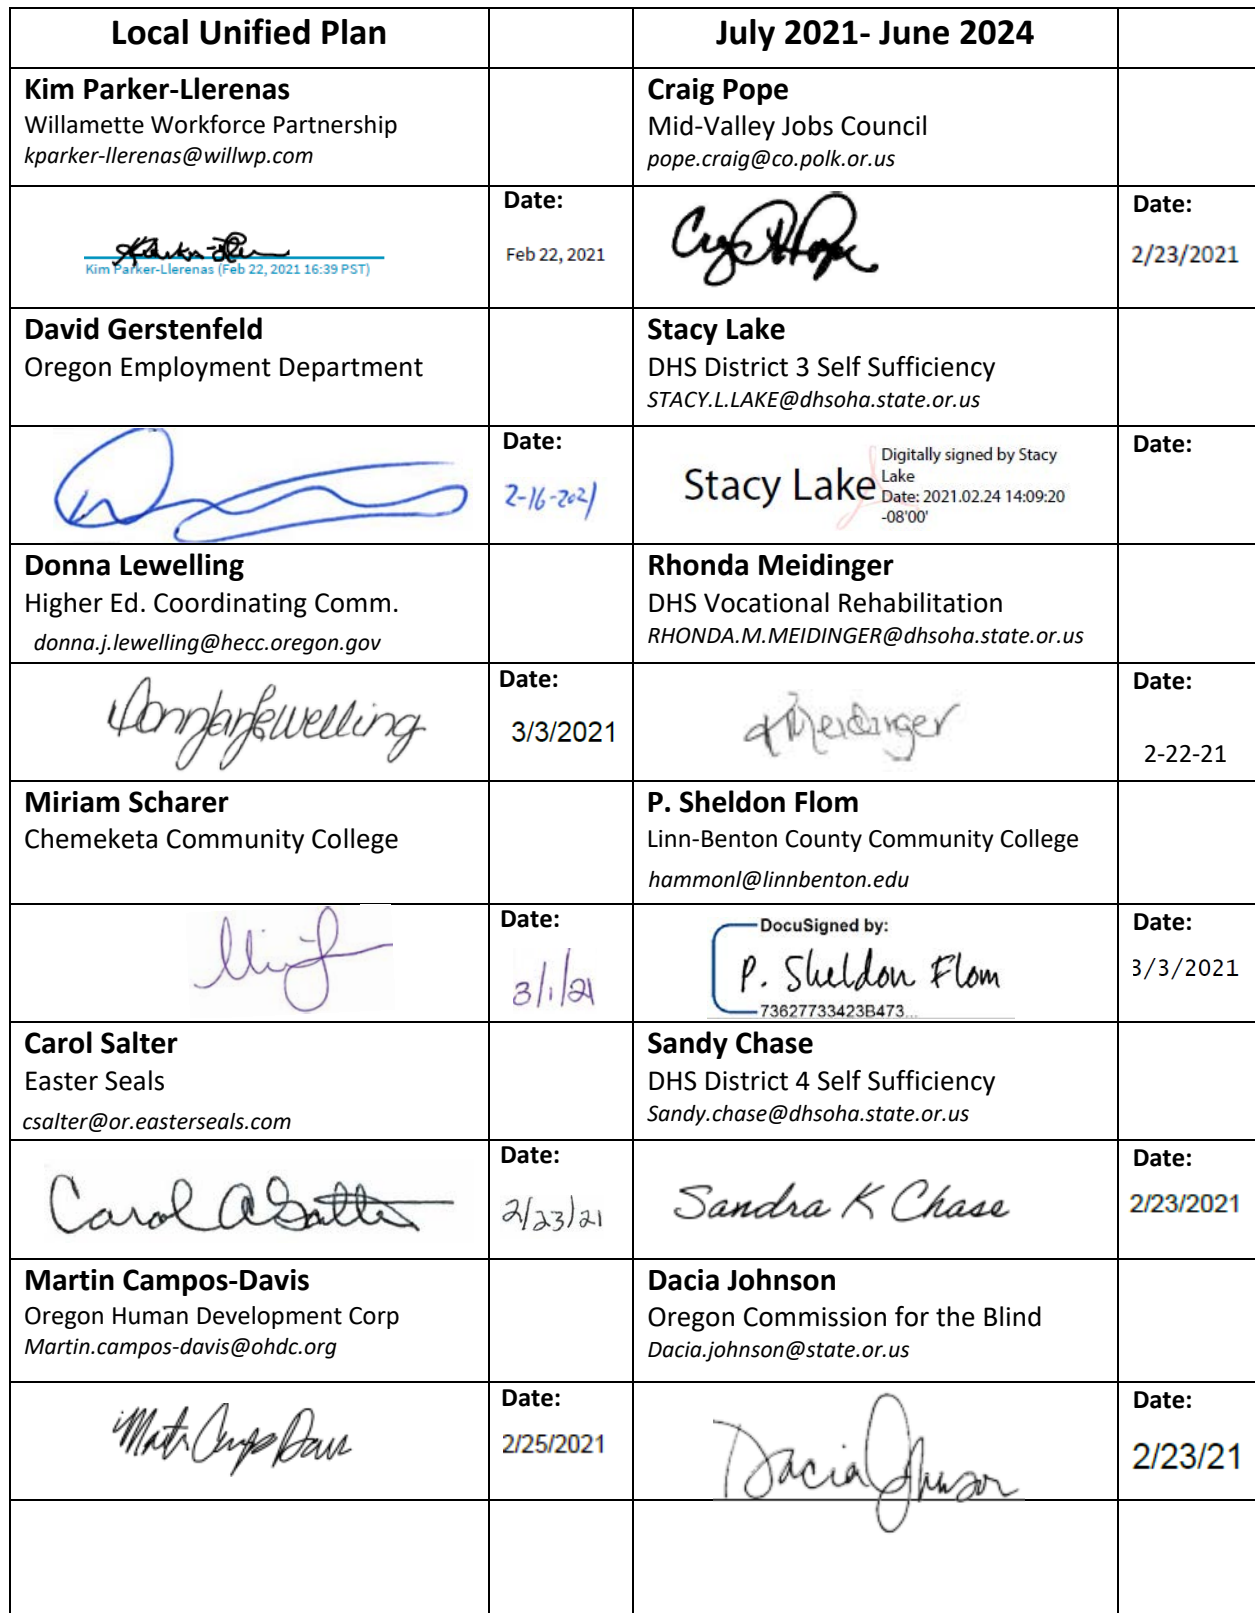 Local Unified Plan
July 2021- June 2024
Kim Parker-Llerenas
Willamette Workforce Partnership
kparker-llerenas@willwp.com
Craig Pope
Mid-Valley Jobs Council
pope.craig@co.polk.or.us
Kim Parker-Llerenas (Feb 22, 2021 16:39 PST)
Date:
Feb 22, 2021
Date:
2/23/2021
David Gerstenfeld
Oregon Employment Department
Stacy Lake
DHS District 3 Self Sufficiency
STACY.L.LAKE@dhsoha.state.or.us
Date:
2-16-2021
Stacy Lake
Digitally signed by Stacy
Lake
Date: 2021.02.24 14:09:20
-08'00'
Date:
Donna Lewelling
Higher Ed. Coordinating Comm.
donna.j.lewelling@hecc.oregon.gov
Rhonda Meidinger
DHS Vocational Rehabilitation
RHONDA.M.MEIDINGER@dhsoha.state.or.us
Donna J Lewelling
Date:
3/3/2021
R Meidinger
Date:
2-22-21
Miriam Scharer
Chemeketa Community College
P. Sheldon Flom
Linn-Benton County Community College
hammonl@linnbenton.edu
Date:
3/1/21
DocuSigned by:
P. Sheldon Flom
73627733423B473...
Date:
3/3/2021
Carol Salter
Easter Seals
csalter@or.easterseals.com
Sandy Chase
DHS District 4 Self Sufficiency
Sandy.chase@dhsoha.state.or.us
Carol A Salter
Date:
2/23/21
Sandra K Chase
Date:
2/23/2021
Martin Campos-Davis
Oregon Human Development Corp
Martin.campos-davis@ohdc.org
Dacia Johnson
Oregon Commission for the Blind
Dacia.johnson@state.or.us
Date:
2/25/2021
Dacia Johnson
Date:
2/23/21